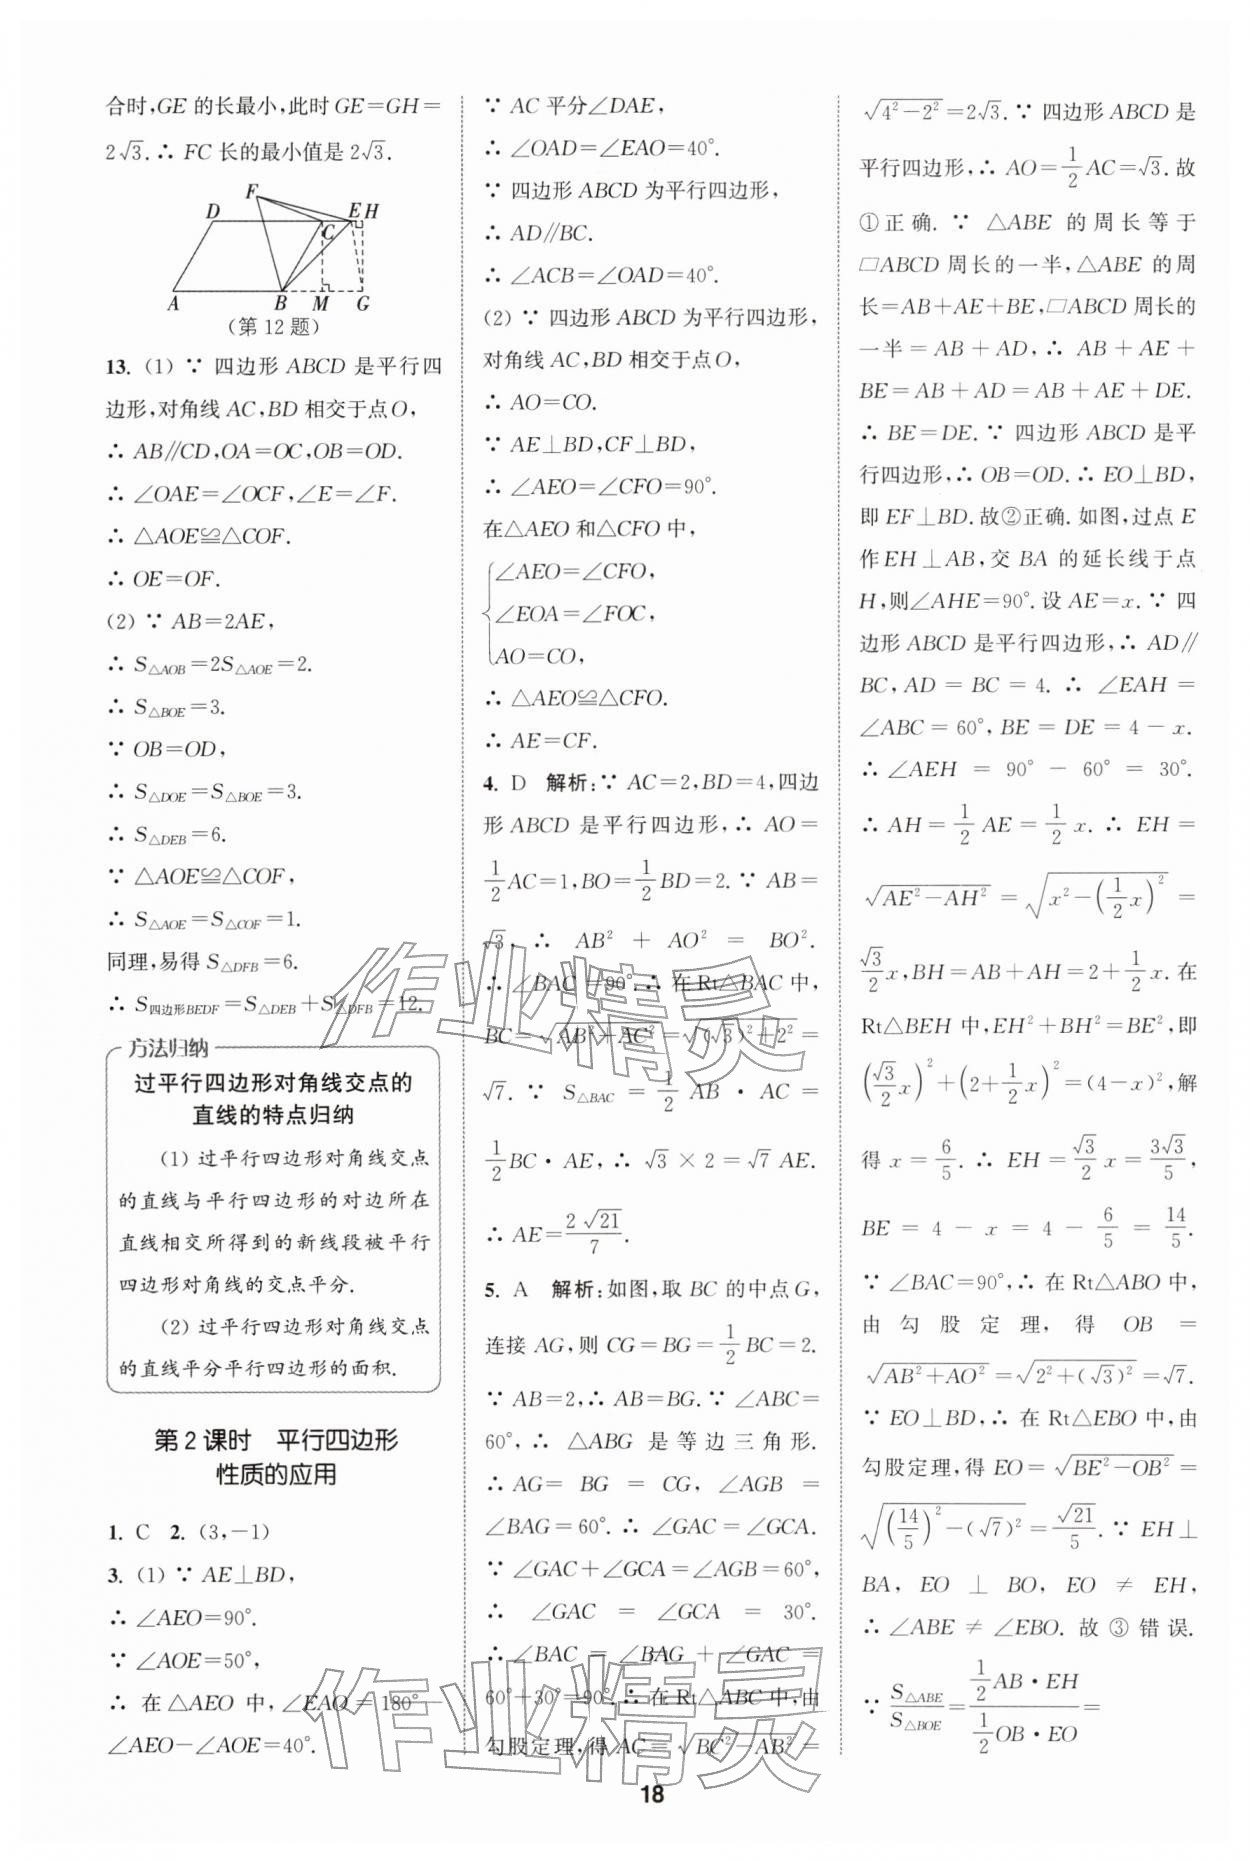 合时,GE 的长最小,此时 GE=GH=
2√3.∴ FC 长的最小值是 2√3.
F
D
E H
C
A
B
M
G
(第 12 题)
13. (1) ∵ 四边形 ABCD 是平行四
边形,对角线 AC,BD 相交于点 O,
∴ AB∥CD,OA=OC,OB=OD.
∴ ∠OAE=∠OCF,∠E=∠F.
∴ △AOE≌△COF.
∴ OE=OF.
(2) ∵ AB=2AE,
∴ S△AOB=2S△AOE=2.
∴ S△BOE=3.
∵ OB=OD,
∴ S△DOE=S△BOE=3.
∴ S△DEB=6.
∵ △AOE≌△COF,
∴ S△AOE=S△COF=1.
同理,易得 S△DFB=6.
∴ S四边形BEDF=S△DEB+S△DFB=12.
方法归纳
过平行四边形对角线交点的
直线的特点归纳
(1) 过平行四边形对角线交点
的直线与平行四边形的对边所在
直线相交所得到的新线段被平行
四边形对角线的交点平分.
(2) 过平行四边形对角线交点
的直线平分平行四边形的面积.
第 2 课时 平行四边形
性质的应用
1. C 2. (3,-1)
3. (1) ∵ AE⊥BD,
∴ ∠AEO=90°.
∵ ∠AOE=50°,
∴ 在△AEO 中,∠EAO = 180°-
∠AEO-∠AOE=40°.
∵ AC 平分∠DAE,
∴ ∠OAD=∠EAO=40°.
∵ 四边形 ABCD 为平行四边形,
∴ AD∥BC.
∴ ∠ACB=∠OAD=40°.
(2) ∵ 四边形 ABCD 为平行四边形,
对角线 AC,BD 相交于点 O,
∴ AO=CO.
∵ AE⊥BD,CF⊥BD,
∴ ∠AEO=∠CFO=90°.
在△AEO 和△CFO 中,
∠AEO=∠CFO,
∠EOA=∠FOC,
AO=CO,
∴ △AEO≌△CFO.
∴ AE=CF.
4. D 解析:∵ AC=2,BD=4,四边
形 ABCD 是平行四边形,∴ AO=
1/2 AC=1,BO=1/2 BD=2.∵ AB=
√3,∴ AB² + AO² = BO².
∴ ∠BAC=90°.∴ 在 Rt△BAC 中,
BC=√(AB²+AC²)=√((√3)²+2²)=
√7. ∵ S△BAC = 1/2 AB · AC =
1/2 BC·AE,∴ √3×2=√7 AE.
∴ AE=2√21/7.
5. A 解析:如图,取 BC 的中点 G,
连接 AG,则 CG=BG=1/2 BC=2.
∵ AB=2,∴ AB=BG.∵ ∠ABC=
60°,∴ △ABG 是等边三角形.
∴ AG = BG = CG,∠AGB =
∠BAG=60°.∴ ∠GAC=∠GCA.
∵ ∠GAC+∠GCA=∠AGB=60°,
∴ ∠GAC = ∠GCA = 30°.
∴ ∠BAC = ∠BAG + ∠GAC =
60°+30°=90°.∴ 在 Rt△ABC 中,由
勾股定理,得 AC=√(BC²-AB²)=
√(4²-2²)=2√3.∵ 四边形 ABCD 是
平行四边形,∴ AO=1/2 AC=√3.故
①正确.∵ △ABE 的周长等于
□ABCD 周长的一半,△ABE 的周
长=AB+AE+BE,□ABCD 周长的
一半=AB+AD,∴ AB+AE+
BE=AB+AD=AB+AE+DE.
∴ BE=DE.∵ 四边形 ABCD 是平
行四边形,∴ OB=OD.∴ EO⊥BD,
即 EF⊥BD.故②正确.如图,过点 E
作 EH⊥AB,交 BA 的延长线于点
H,则∠AHE=90°.设 AE=x.∵ 四
边形 ABCD 是平行四边形,∴ AD∥
BC,AD = BC = 4. ∴ ∠EAH =
∠ABC=60°,BE=DE=4-x.
∴ ∠AEH = 90° - 60° = 30°.
∴ AH=1/2 AE=1/2 x.∴ EH=
√(AE²-AH²) = √(x²-(1/2 x)²) =
√3/2 x,BH=AB+AH=2+1/2 x.在
Rt△BEH 中,EH²+BH²=BE²,即
(√3/2 x)²+(2+1/2 x)²=(4-x)²,解
得 x=6/5.∴ EH=√3/2 x=3√3/5,
BE = 4 - x = 4 - 6/5 = 14/5.
∵ ∠BAC=90°,∴ 在 Rt△ABO 中,
由勾股定理,得 OB=
√(AB²+AO²)=√(2²+(√3)²)=√7.
∵ EO⊥BD,∴ 在 Rt△EBO 中,由
勾股定理,得 EO=√(BE²-OB²)=
√((14/5)²-(√7)²)=√21/5.∵ EH⊥
BA,EO⊥BO,EO≠EH,
∴ ∠ABE≠∠EBO.故③错误.
∵ S△ABE/S△BOE = (1/2 AB·EH)/(1/2 OB·EO) =
18
作业精灵
作业精灵